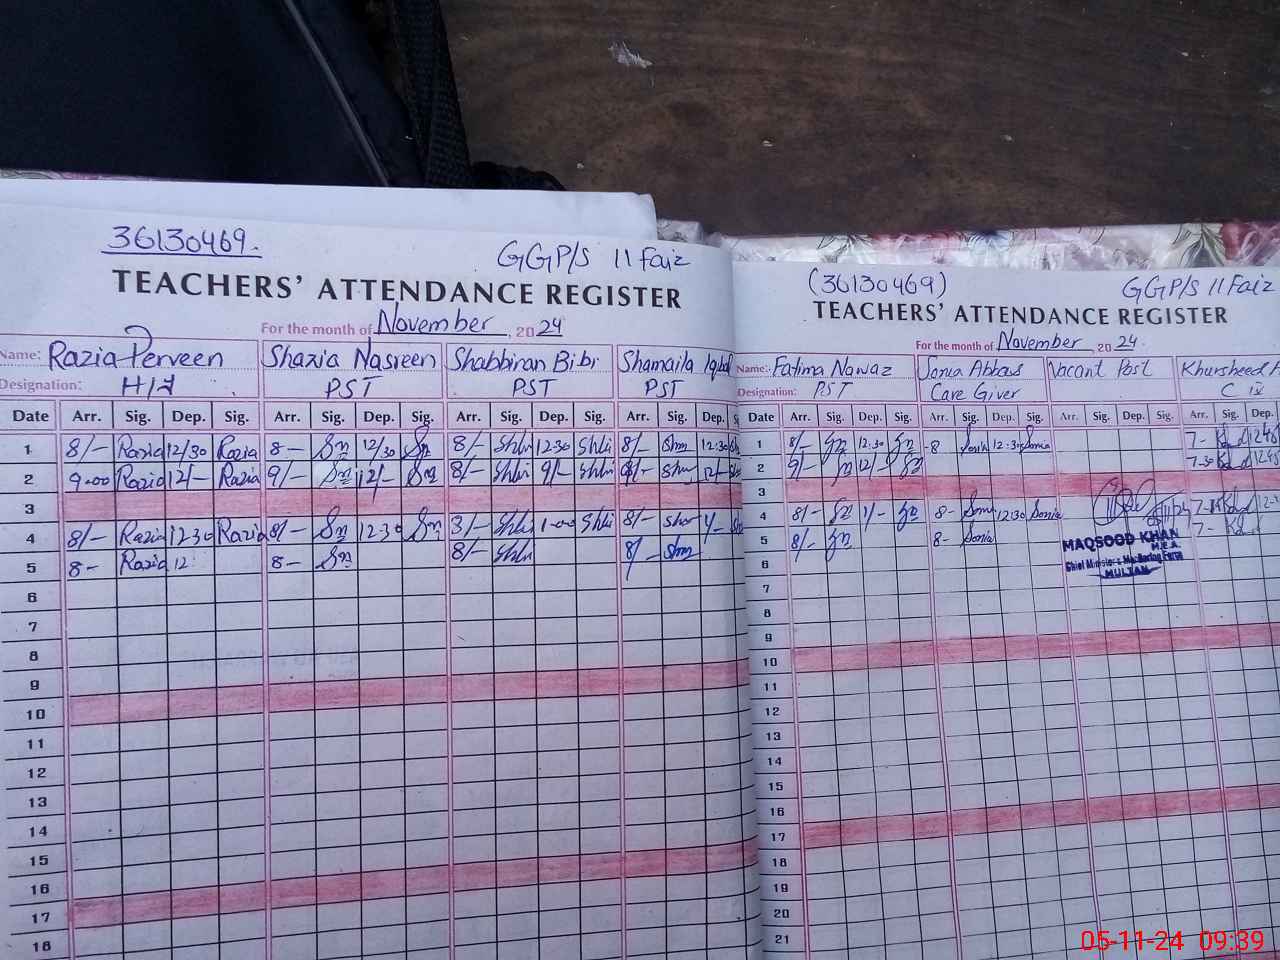 36130469.
GGP/S 11 Faiz
TEACHERS' ATTENDANCE REGISTER
For the month of November, 2024
Name: Razia Perveen Shazia Nasreen Shabbiran Bibi Shamaila Iqbal
Designation: H/T PST PST PST
Date Arr. Sig. Dep. Sig. Arr. Sig. Dep. Sig. Arr. Sig. Dep. Sig. Arr. Sig. Dep.
1 8/- Razia 12/30 Razia 8- Sn 12/30 Sn 8/- Shbi 12.30 Shbi 8/- Shm 12.30
2 9.00 Razia 12/- Razia 9/- Sn 12/- Sn 8/- Shbi 9/- Shbi Shm 12/-
3
4 8/- Razia 12.30 Razia 8/- Sn 12.30 Sn Shbi 1-00 Shbi 8/- Shm
5 8- Razia 12: 8- Sn 8/- Shbi 8/- Shm
6
7
8
9
10
11
12
13
14
15
16
17
18
(36130469)
GGP/S 11 Faiz
TEACHERS' ATTENDANCE REGISTER
For the month of November, 2024.
Name: Fatima Nawaz Sonia Abbas Vacant Post Khursheed
Designation: PST Care Giver C IV
Date Arr. Sig. Dep. Sig. Arr. Sig. Dep. Sig. Arr. Sig. Dep. Sig. Arr. Sig. Dep.
1 8/- 12.30 8 Sonia 12.30 Sonia 7-
2 9/- 12/- 7-30
3
4 8/- 1/- 8- Sonia 12:30 Sonia
5 8/- 8- Sonia 7-
MAQSOOD KHAN
M.E.A.
Chief Minister's Monitoring Force
MULTAN
6
7
8
9
10
11
12
13
14
15
16
17
18
19
20
21
05-11-24 09:39